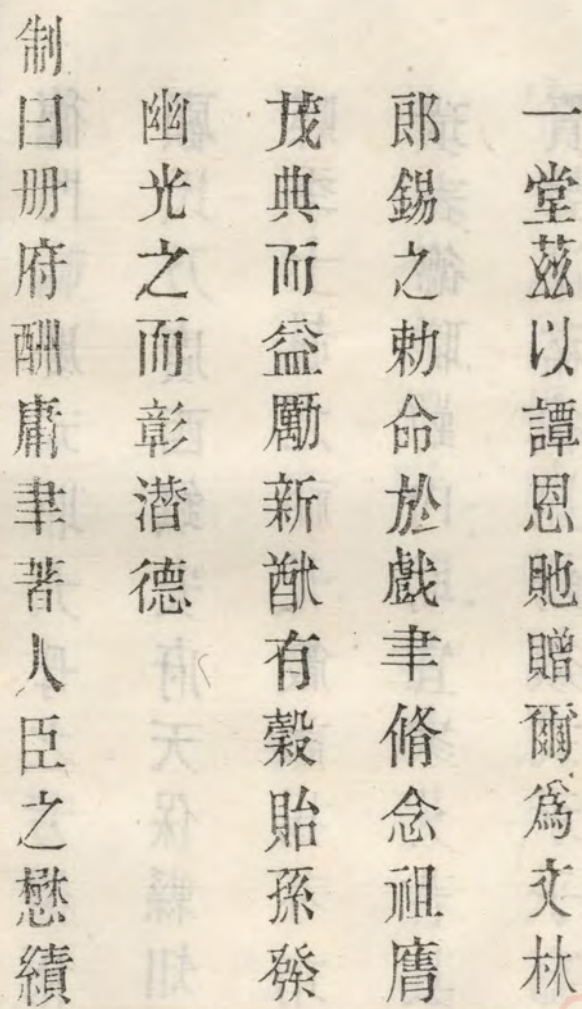 一堂茲以譚恩貤贈爾爲文林
郎錫之勅命於戲聿脩念祖膺
茂典而益勵新猷有穀貽孫發
幽光之而彰潜德
制曰册府酬庸聿著人臣之懋績